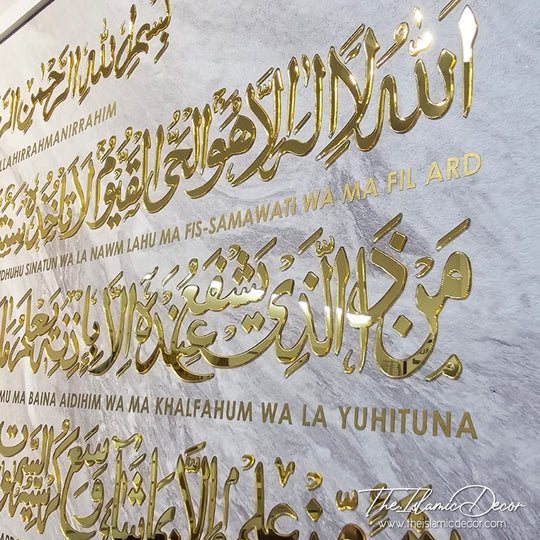 بسم الله الرحمن الر
LLAHIRRAHMANIRRAHIM
الله لا إله إلا هو الحي القيوم لا تأخذه سنة
DHUHU SINATUN WA LA NAWM LAHU MA FIS-SAMAWATI WA MA FIL ARD
من ذا الذي يشفع عنده إلا بإذنه يعلم ما
MU MA BAINA AIDIHIM WA MA KHALFAHUM WA LA YUHITUNA
من علمه إلا بما شاء وسع كرسيه السموات
The Islamic Decor
www.theislamicdecor.com